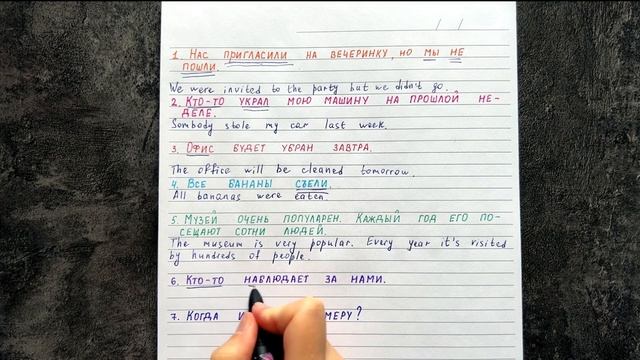 / /
1. Нас пригласили на вечеринку, но мы не
пошли.
We were invited to the party but we didn't go.
2. Кто-то украл мою машину на прошлой не-
деле.
Sombody stole my car last week.
3. Офис будет убран завтра.
The office will be cleaned tomorrow.
4. Все бананы съели.
All bananas were eaten.
5. Музей очень популарен. Каждый год его по-
сещают сотни людей.
The museum is very popular. Every year it's visited
by hundreds of people.
6. Кто-то наблюдает за нами.
7. Когда